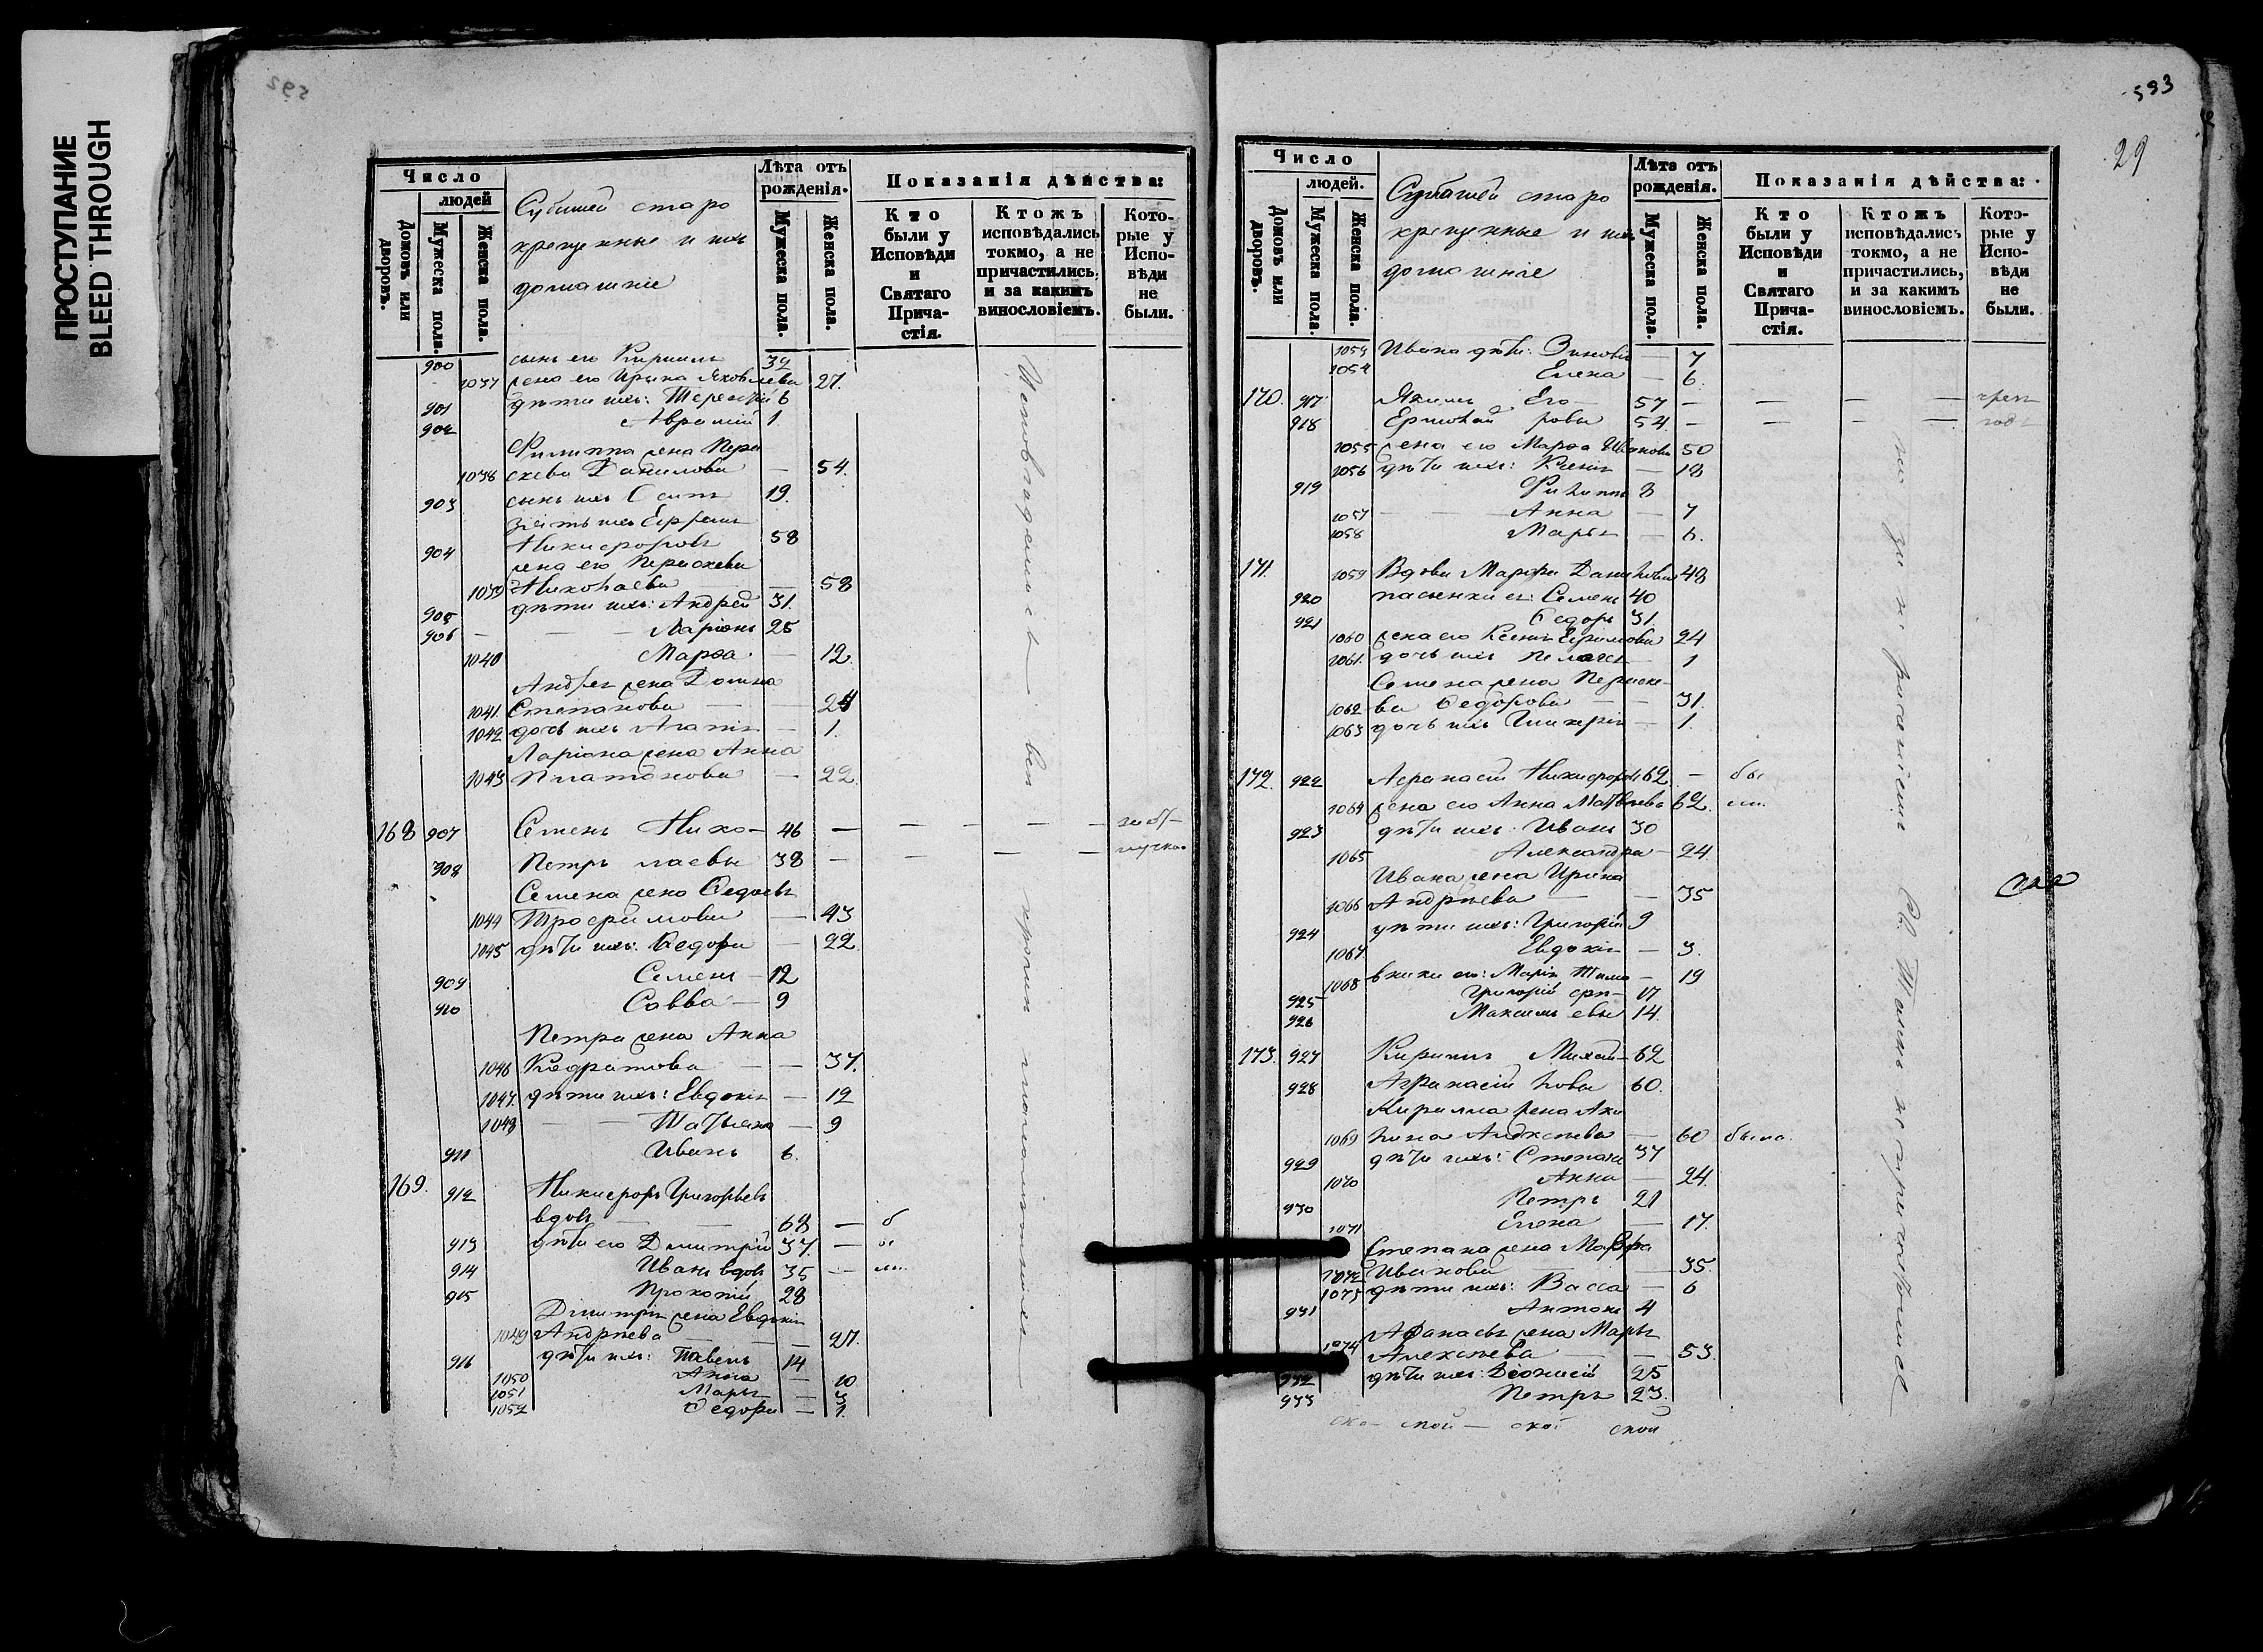 ПРОСТУПАНИЕ
BLEED THROUGH
592
Число
людей
Домовъ или дворовъ.
Мужеска пола.
Женска пола.
старо
крещенные и ихъ
домашніе
Лѣта отъ рожденія.
Мужеска пола.
Женска пола.
Показанія дѣйства:
Кто были у Исповѣди и Святаго Причастія.
Ктожъ исповѣдались токмо, а не причастились, и за какимъ винословіемъ.
Которые у Исповѣди не были.
900 сынъ его Кириллъ 32
1037 жена его Ирина Яковлева 27.
901 дѣти ихъ: Терентій 6
902 Аврамій 1
Филиппа жена Пара
1038 скева Данилова — 54.
903 сынъ ихъ Осипъ 19.
зять ихъ Ефремъ
904 Никифоровъ 58
жена его Параскева
1039 Николаева — 58
905 дѣти ихъ: Андрей 31.
906 — — — Ларіонъ 25
1040 Марѳа — 12.
Андрея жена Домна
1041. Степанова — — 24
1042 дочь ихъ Агапія — 1.
Ларіона жена Анна
1043 Платонова — 22.
168 907 Семенъ Нико- 46 — — — — —
908 Петръ лаевы 38 — — — —
Семена жена Федосья
1044 Трофимова — 43
1045 дѣти ихъ: Федора — 22.
909 Семенъ — 12
910 Савва — 9
Петра жена Анна
1046 Кодратова — — 37.
1047. дѣти ихъ: Евдокія — 12
1048 — — Татьяна — 9
911 Иванъ 6.
169. 912 Никифоръ Григорьевъ
вдовъ — — 68 — б
913 дѣти его Дмитрій 37. — ы
914 Иванъ вдовъ 35 — ли.
915 Прокопій 28
Димитрія жена Евдокія
1049 Андреева — — 27.
916 дѣти ихъ: Павелъ 14
1050 Анна — 10
1051 Марья — 3
1052 Федора — 1.
Исповѣдались — всѣ кромѣ малолѣтнихъ
593
29
Число
людей.
Домовъ или дворовъ.
Мужеска пола.
Женска пола.
старо
крещенные и ихъ
домашніе
Лѣта отъ рожденія.
Мужеска пола.
Женска пола.
Показанія дѣйства:
Кто были у Исповѣди и Святаго Причастія.
Ктожъ исповѣдались токмо, а не причастились, и за какимъ винословіемъ.
Которые у Исповѣди не были.
1053 Ивана дѣти: Зиновія — 7
1054 Елена — 6.
170. 917 Якимъ Его- 57 — — — —
918 Ермолай ровы 54. — — — —
1055 жена его Марѳа Иванова 50
1056 дѣти ихъ: Ксенія — 18
919 Филиппъ 8
1057 — — Анна — 7
1058 Марья — 6.
171. 1059 Вдова Марфа Данилова 48
920 пасынки ея: Семенъ 40
921 Федоръ 31.
1060 жена его Ксенія Ефимова 24
1061. дочь ихъ Пелагея — 1
Семена жена Параске-
1062 ва Федорова — — 31.
1063 дочь ихъ Гликерія — 1.
172. 922 Афанасій Никифоровъ 62 — бы
1064 жена его Анна Матвѣева 62. ли.
923 дѣти ихъ: Иванъ 30
1065 Александра — 24.
Ивана жена Ирина
1066 Андреева — — 35
924 дѣти ихъ: Григорій 9
1067. Евдокія — 3.
1068 внуки его: Марія Тимо — 19
925 Григорій фе- 17
926 Максимъ евы 14.
173. 927 Кириллъ Михай- 62
928 Афанасій ловы 60.
Кирилла жена Аку
1069 лина Алексѣева — 60 была.
929 дѣти ихъ: Степанъ 37
1070 Анна — 24.
930 Петръ 21
1071 Елена — 17.
Степана жена Марфа
1072 Иванова — — 35.
1073 дѣти ихъ: Васса — 6
931 Антонъ 4
Афанасья жена Марья
1074 Алексѣева — — 53.
932 дѣти ихъ: Діонисій 25
933 Петръ 23.
Св. Таинъ не пріобщились